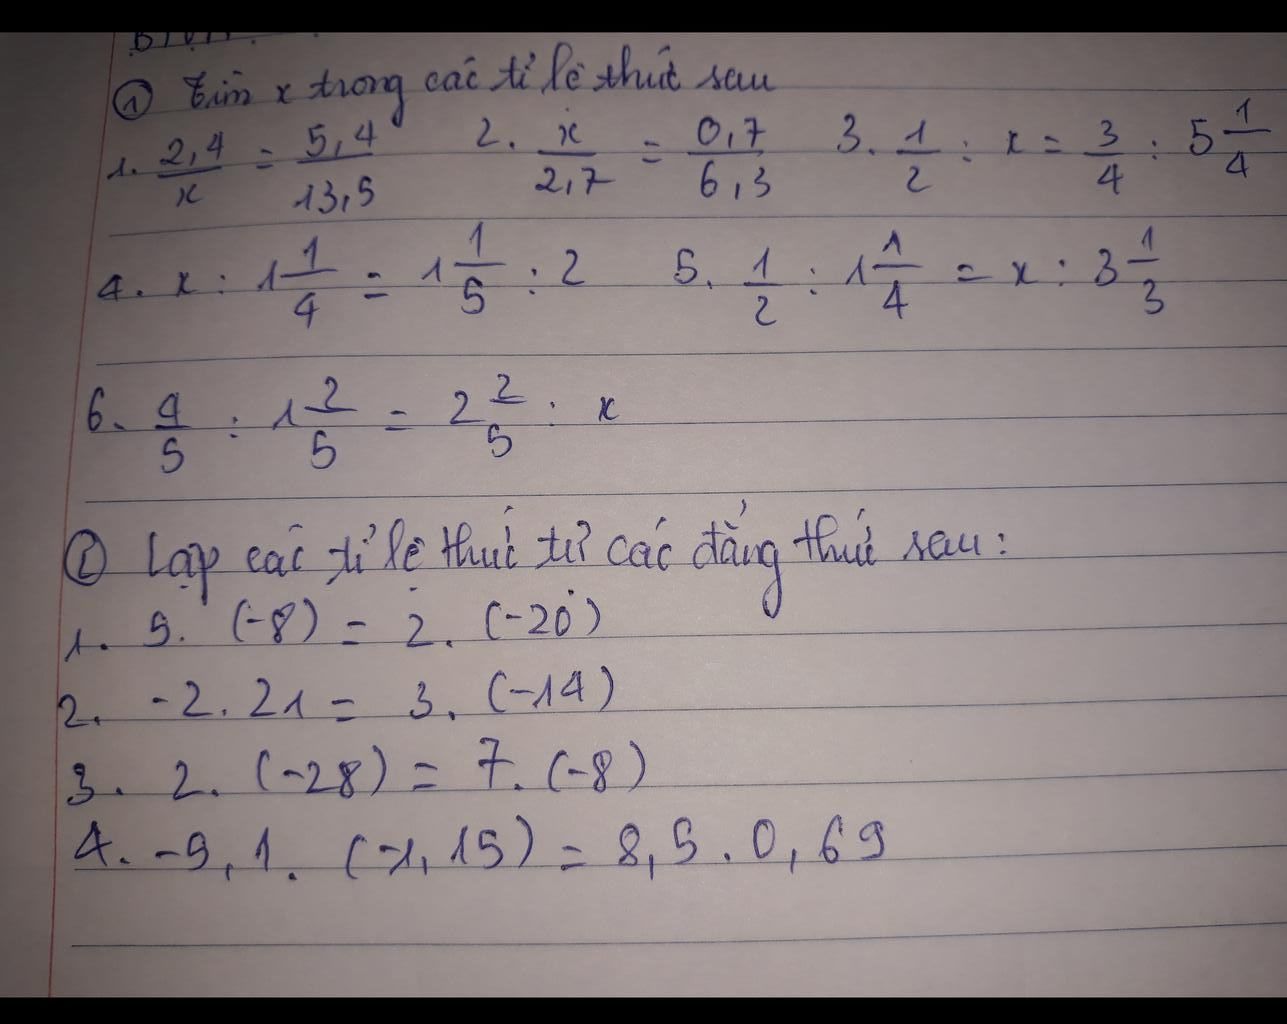 ① Tìm x trong các tỉ lệ thức sau
1. 2,4/x = 5,4/13,5 2. x/2,7 = 0,7/6,3 3. 1/2 : x = 3/4 : 5 1/4
4. x : 1 1/4 = 1 1/5 : 2 5. 1/2 : 1 1/4 = x : 3 1/3
6. 4/5 : 1 2/5 = 2 2/5 : x
② Lập các tỉ lệ thức từ các đẳng thức sau:
1. 5. (-8) = 2. (-20)
2. -2. 21 = 3. (-14)
3. 2. (-28) = 7. (-8)
4. -5,1. (-1,15) = 8,5. 0,69